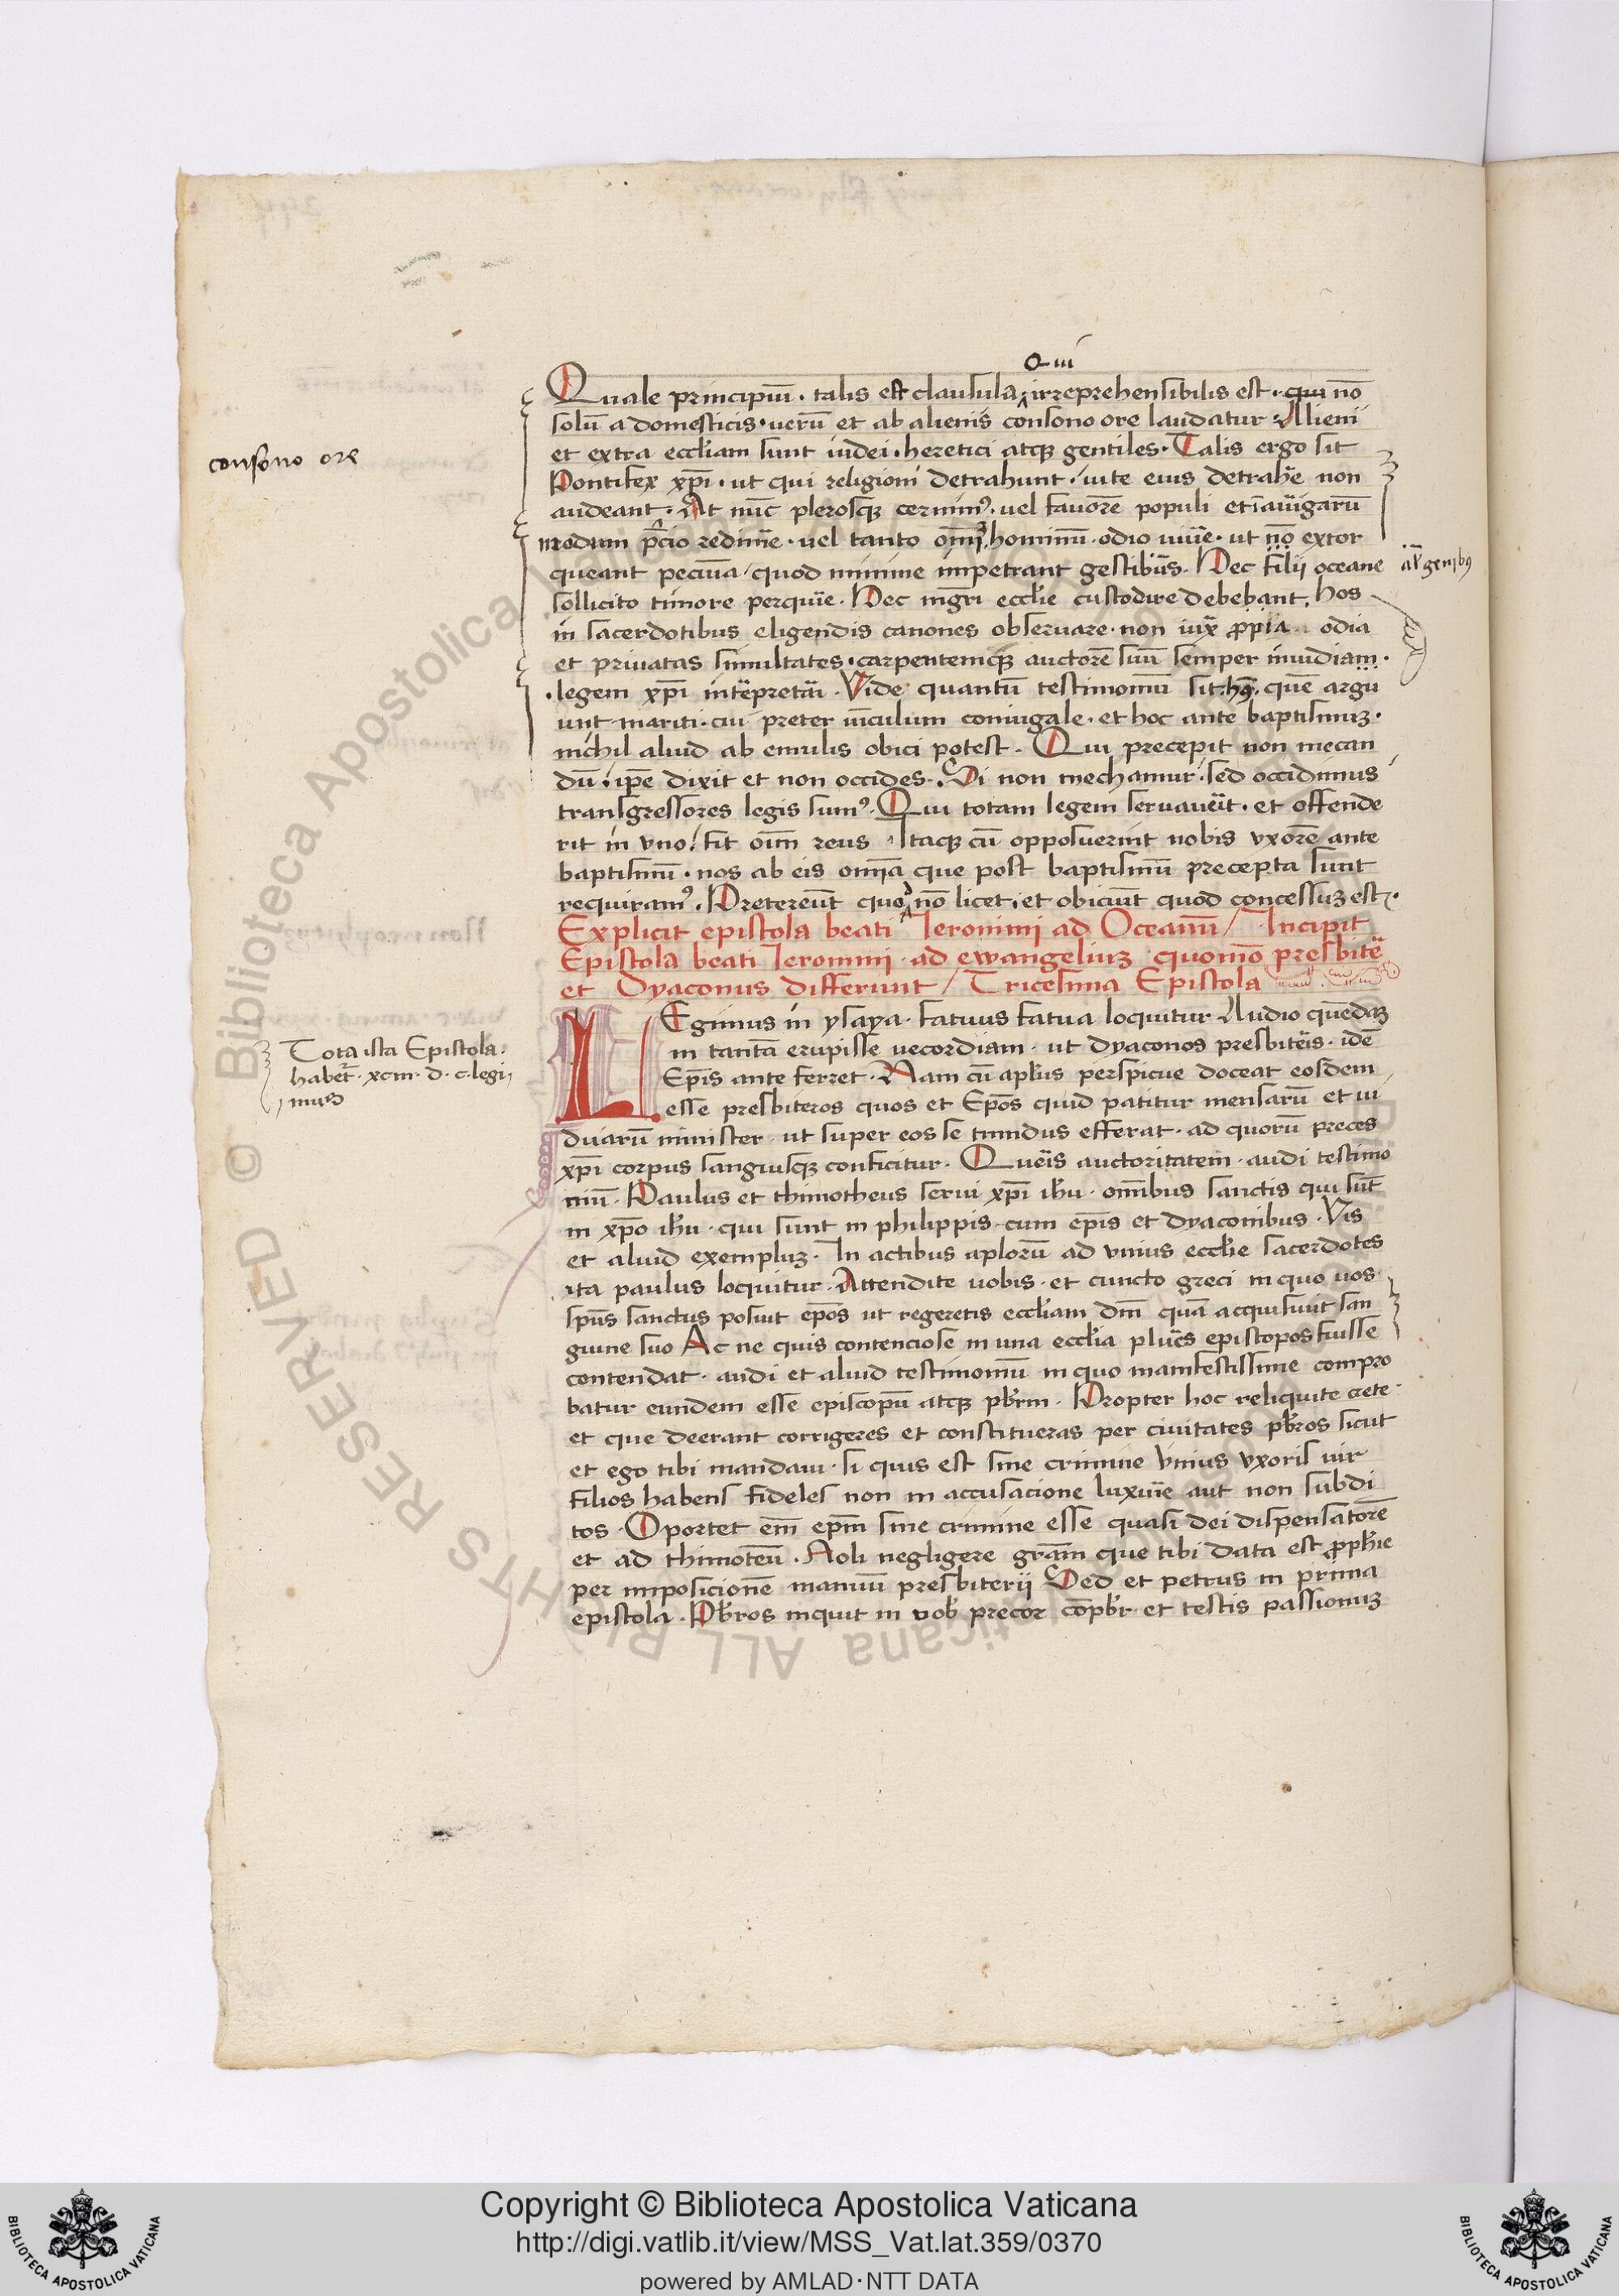 Qui
Quale principiū · talis est clausula · irreprehensibilis est · qui nō
solū a domesticis · uerū et ab alienis consono ore laudatur · Alieni
consono ore
et extra eccl̄iam sunt iudei · heretici atqꝫ gentiles · Talis ergo sit
Pontifex xp̄i · ut qui religioni detrahunt · uite eius detrahe͂ non
audeant · At nūc plerosqꝫ cernimꝰ · uel fauorē populi et ī auͥigarū
modum p̄cio redime͂ · uel tanto om̄i hominū · odio uiue͂ · ut nō extor
queant pecūa / quod minime impetrant gestibus · Nec filii oceane
al' genibꝰ
sollicito timore perquire͂ · Nec mgr̄i eccl̄ie custodire debebant. Hos
in sacerdotibus eligendis canones obseruare · non iux̄ ꝓpia odia
et priuatas simultates · carpentemqꝫ auctorē suū semper inuidiam ·
· legem xp̄i interpretāi · Vide quantū testimoniū sit · hꝰ · quē argu
unt mariti · cui preter uīculum coniugale · et hoc ante baptismuꝫ ·
nichil aliud ab emulis obici potest · Qui precepit non mecan
dū · ip̄e dixit et non occides · Si non mechamur · sed occidimus
transgressores legis sumꝰ · Qui totam legem seruaue͂it · et offende
rit in vno / fit oīm reus · Itaqꝫ cū opposuerint nobis vxorē ante
baptismū · nos ab eis om̄ia que post baptismū precepta sunt
requiramꝰ · Pretereūt quo nō licet · et obiciūt quod concessuꝫ est ·
Explicit epistola beati Ieronimi ad Oceanū / Incipit
Epistola beati Ieronimi · ad ewangeliuꝫ · quomō presbite͂
et Dyaconus differunt / Tricesima Epistola
LEgimus in ysaya · fatuus fatua loquitur Audio quēdaꝫ
Tota ista Epistola ·
habet͂ · xciii · d · c · legi
mus
in tantā erupisse uecordiam · ut dyaconos presbite͂is · idē
Ep̄is ante ferret · Nam cū apl̄us perspicue doceat eosdem
esse presbiteros quos et Ep̄os quid patitur mensarū et ui
duarū minister · ut super eos se tumidus efferat · ad quorū preces
xp̄i corpus sanguisqꝫ conficitur · Que͂is auctoritatem · audi testimo
niū · Paulus et thimotheus serui xp̄i ih̄u · om̄ibus sanctis qui sūt
in xp̄o ih̄u · qui sunt in philippis · cum ep̄is et dyaconibus · Vis
et aliud exempluꝫ · In actibus aplorū ad vnius eccl̄ie sacerdotes
ita paulus loquitur · Attendite uobis · et cuncto greci in quo uos
sp̄us sanctus posuit ep̄os ut regeretis eccl̄iam dn̄i quā acquisiuit san
guine suo Ac ne quis contenciose in una eccl̄ia plue͂s epistopos fuisse
contendat · audi et aliud testimoniū in quo manifestissime compro
batur eundem esse episcopū atqꝫ pb̄rm · Propter hoc reliqui te crete ·
et que deerant corrigeres et constitueras per ciuitates pb̄ros sicut
et ego tibi mandaui · si quis est sine crimine vnius vxoris uir
filios habens fideles non in accusacione luxuīe aut non subdi
tos · Oportet em̄ ep̄m sine crimine esse quasi dei dispensatorē
et ad thimoteū · Noli negligere grām que tibi data est ꝓph̄ie
per imposicionē manuū presbiterii Sed et petrus in prima
epistola · Pb̄ros inquit in vob̄ precor cōpb̄r et testis passionuꝫ
Copyright © Biblioteca Apostolica Vaticana
http://digi.vatlib.it/view/MSS_Vat.lat.359/0370
powered by AMLAD·NTT DATA
BIBLIOTECA APOSTOLICA VATICANA
BIBLIOTECA APOSTOLICA VATICANA